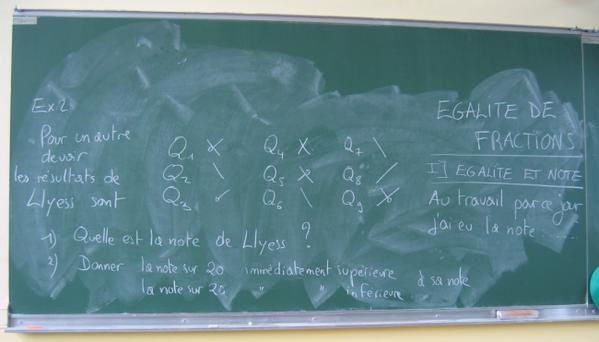 Ex.2
Pour un autre
devoir
les résultats de
Llyess sont
Q1 X Q4 X Q7 \
Q2 \ Q5 X Q8 /
Q3 ✓ Q6 \ Q9 X
1) Quelle est la note de Llyess ?
2) Donner la note sur 20 immédiatement supérieure à sa note
la note sur 20 " " inférieure
EGALITE DE
FRACTIONS
I] EGALITE ET NOTE
Au travail par ce jour
j'ai eu la note ......